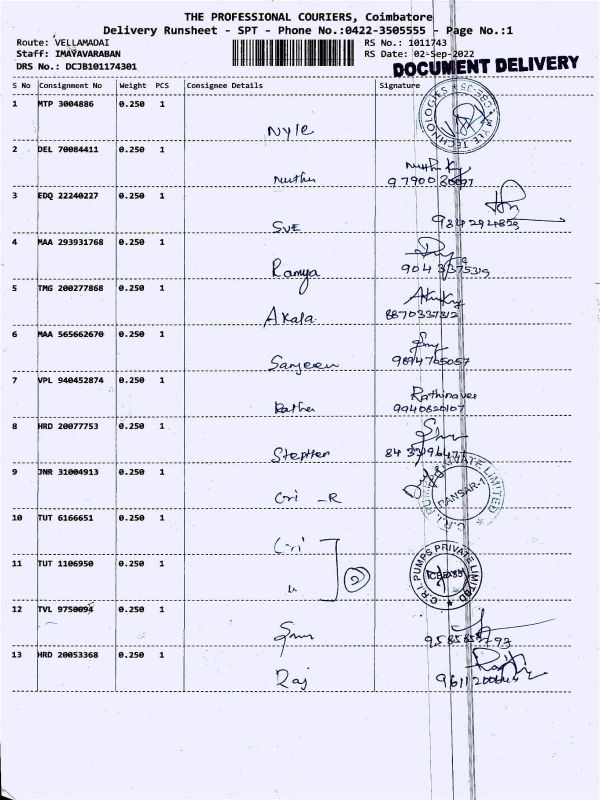 THE PROFESSIONAL COURIERS, Coimbatore
Delivery Runsheet - SPT - Phone No.:0422-3505555 - Page No.:1
Route: VELLAMADAI RS No.: 1011743
Staff: IMAYAVARABAN RS Date: 02-Sep-2022
DRS No.: DCJB101174301 DOCUMENT DELIVERY
S No Consignment No Weight PCS Consignee Details Signature
1 MTP 3004886 0.250 1
Nyle
2 DEL 70084411 0.250 1
3 EDQ 22240227 0.250 1
SVE
4 MAA 293931768 0.250 1
Ramya
5 TMG 200277868 0.250 1
Akala
8870337312
6 MAA 565662670 0.250 1
Sanjeev
9894705057
7 VPL 940452874 0.250 1
Rathinavel
9940820107
8 HRD 20077753 0.250 1
Stepher
9 JNR 31004913 0.250 1
Cri -R
PANSAR-1
10 TUT 6166651 0.250 1
Cri
11 TUT 1106950 0.250 1
2
C.R.I. PUMPS PRIVATE LIMITED
12 TVL 9750094 0.250 1
13 HRD 20053368 0.250 1
Raj